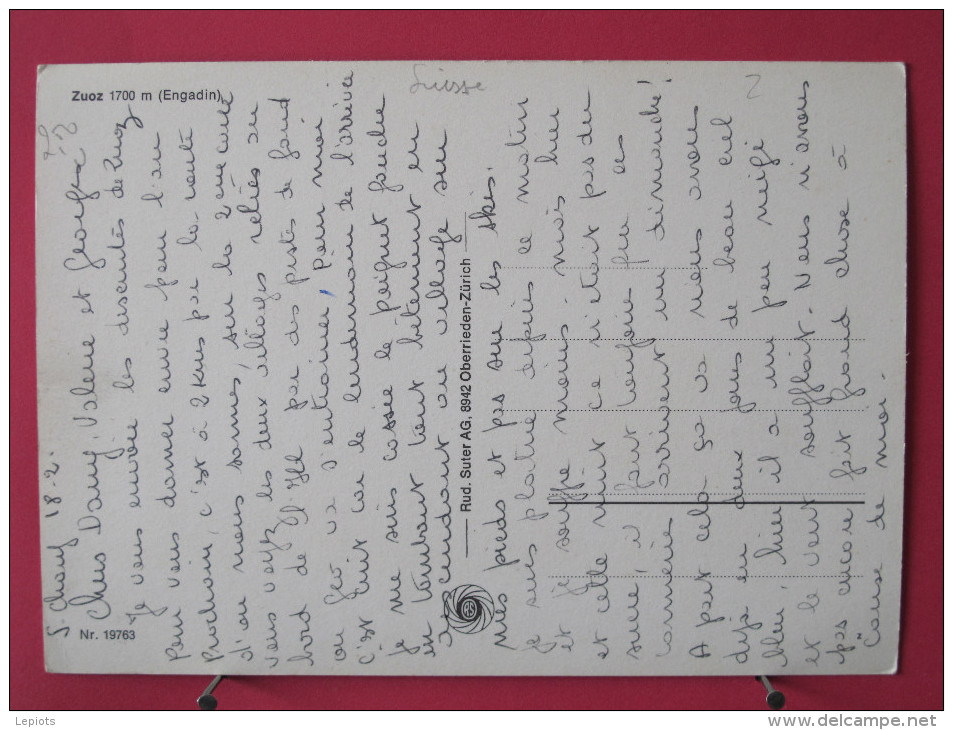 Zuoz 1700 m (Engadin)
Suisse
S. Chanf 18-2.
Chers Dany, Valerie et Georges
Je vous envoie les descentes de Zuoz
pour vous donner envie pour l'an
prochain, c'est à 2 kms par la route
d'où nous sommes, sur la 2eme carte
vous voyez les deux villages reliés au
bord de l'Inn par des pistes de fond
où Géo va s'entrainer, Pour moi
c'est cuit car le lendemain de l'arrivée
je me suis cassée le poignet gauche
en tombant tout bêtement en
descendant au village sur
mes pieds et pas sur les skis.
Je suis platrée depuis ce matin
et je souffre moins - mais hier
et cette nuit ce n'était pas du
sucre, il faut toujours que ces
conneries arrivent un dimanche!
A part cela ça va nous avons
déjà eu deux jours de beau ciel
bleu, hier il a un peu neigé
et le vent soufflait. Nous n'avons
pas encore fait grand chose à
cause de moi.
Rud. Suter AG, 8942 Oberrieden-Zürich
RS
Nr. 19763
2
Lepiots
www.delcampe.net